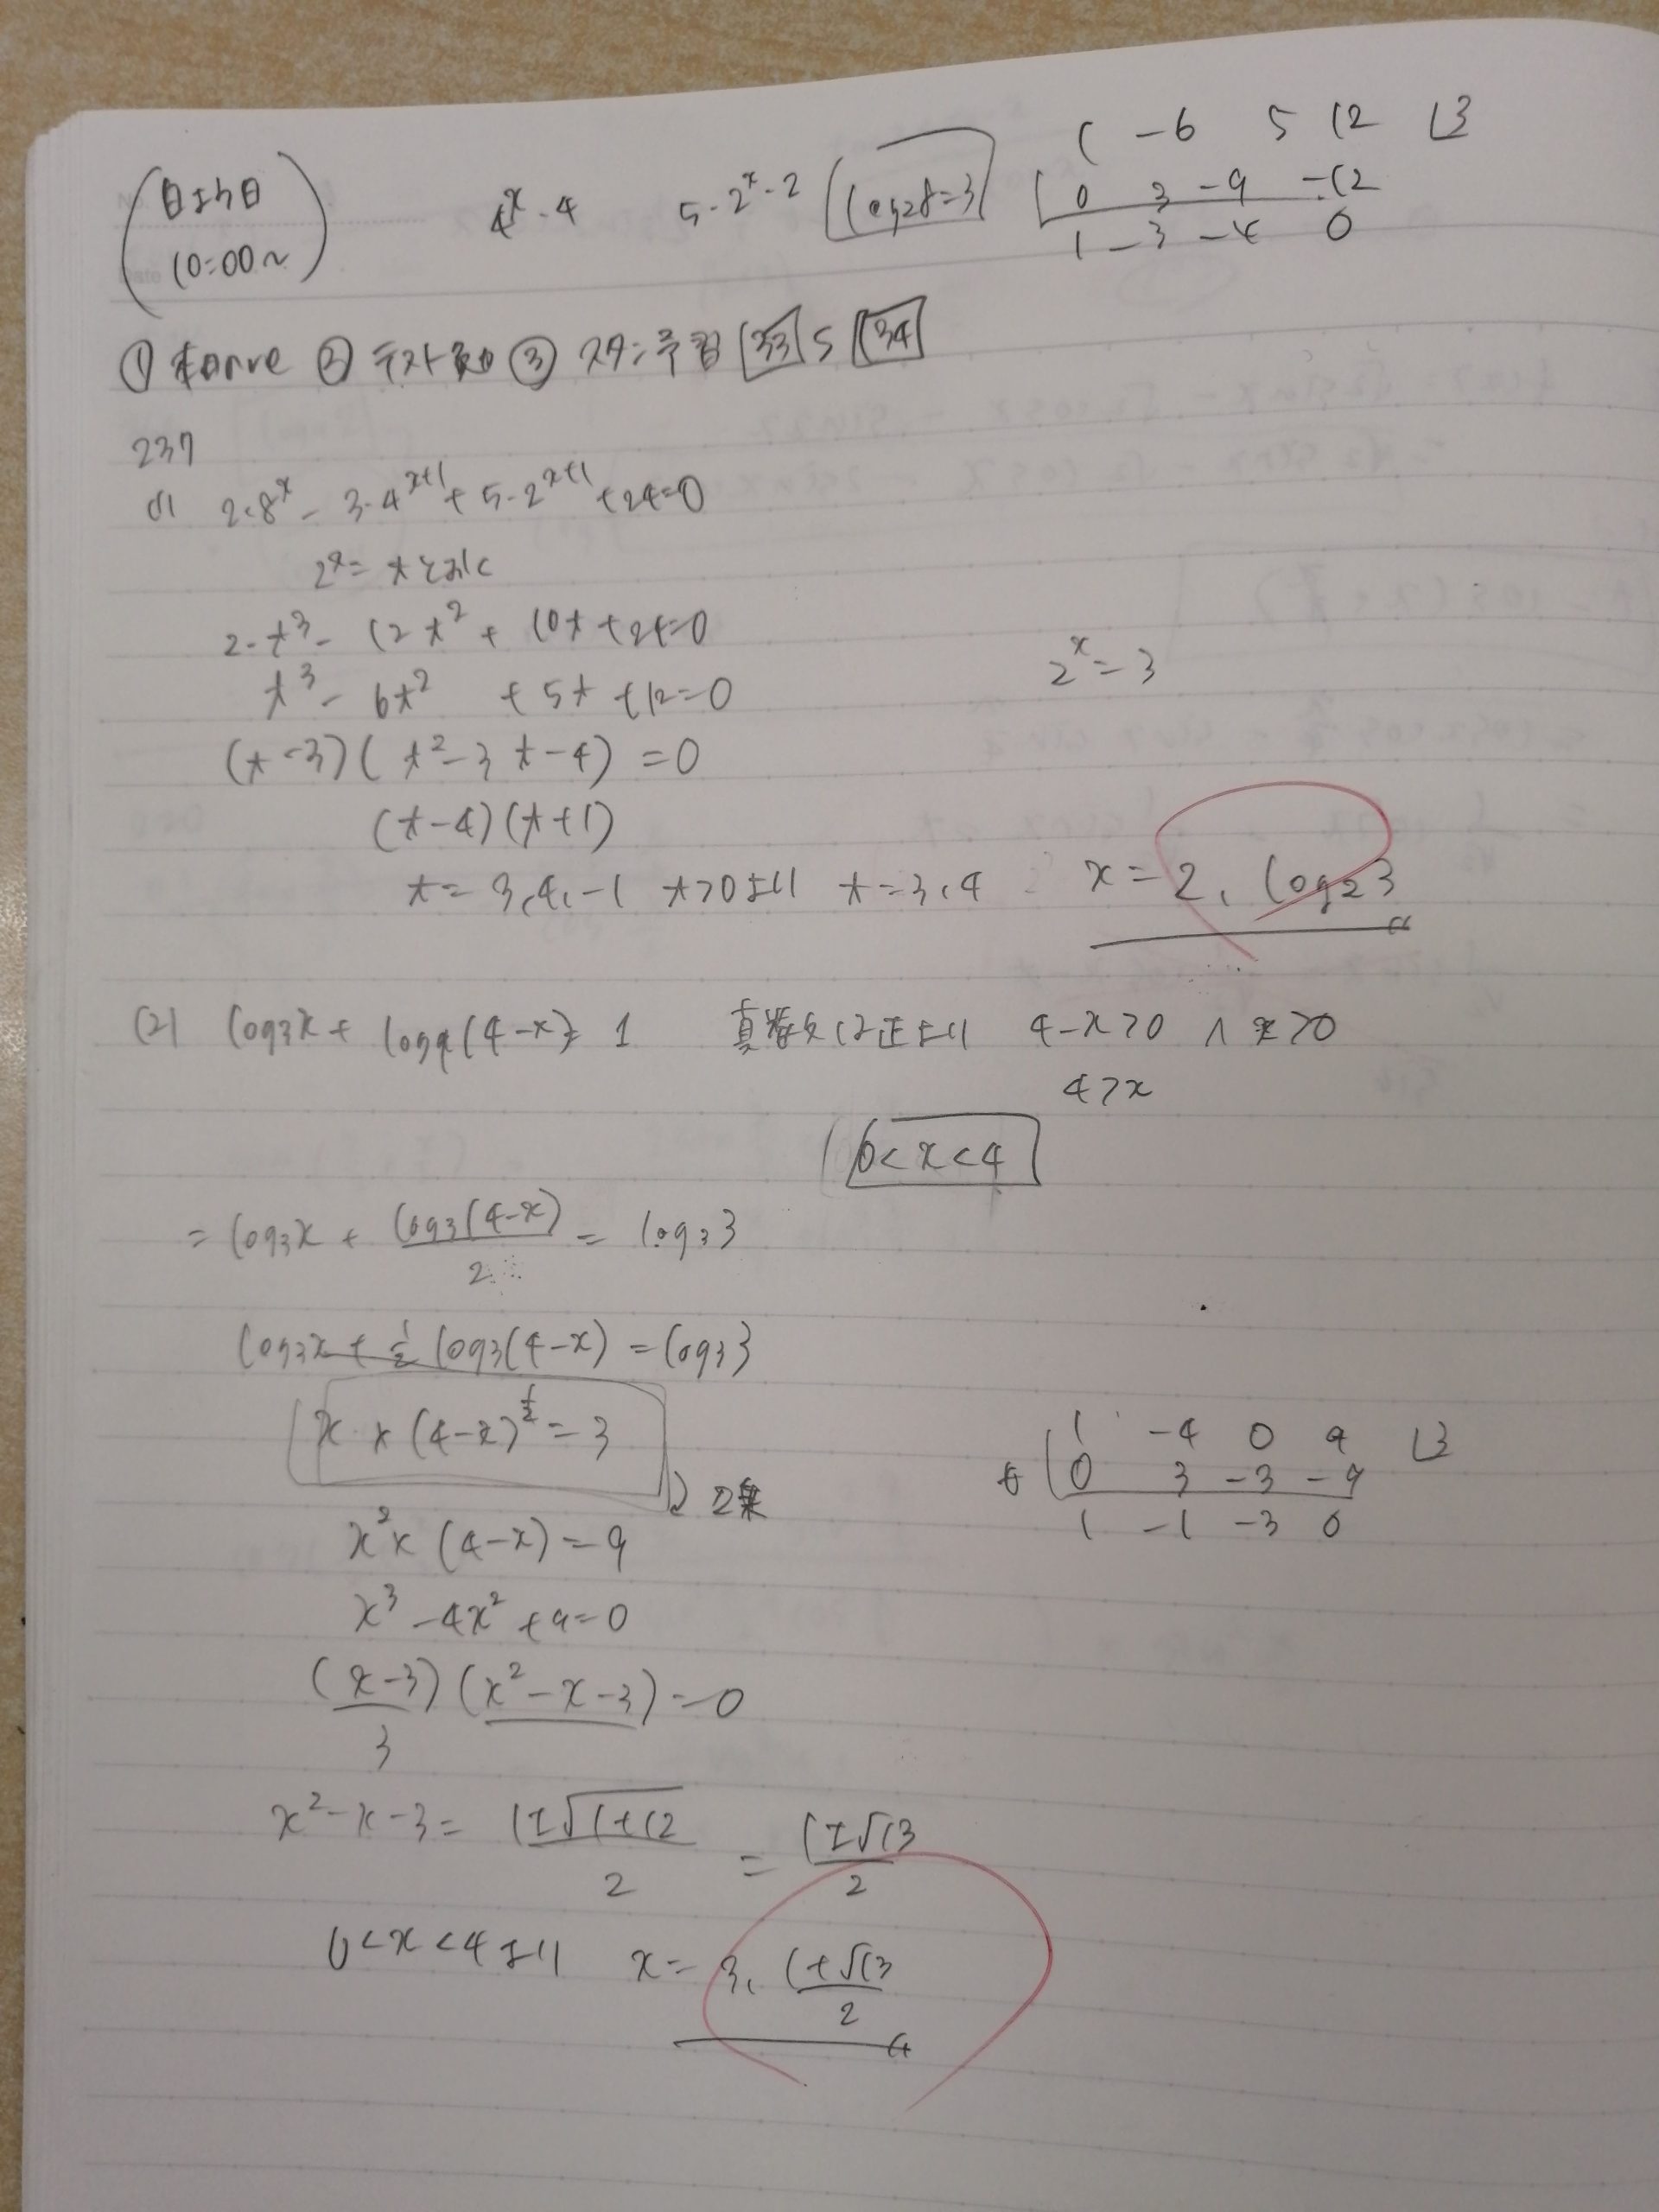 10:00~
4^x・4  5・2^x・2  log₂8=3
1 -6 5 12 |3
0 3 -9 -12
1 -3 -4 0
① ② テスト ③ スタ 予習 33 34
237
(1) 2・8^x - 3・4^(x+1) + 5・2^(x+1) + 24=0
2^x = t とおく
2・t³ - 12t² + 10t + 24=0
t³ - 6t² + 5t + 12=0
2^x = 3
(t-3)(t²-3t-4) = 0
(t-4)(t+1)
t = 3,4,-1  t>0より t=3,4  x=2, log₂3
(2) log₃x + log₉(4-x) = 1  真数は正より 4-x>0 ∧ x>0
4>x
0<x<4
= log₃x + log₃(4-x)/2 = log₃3
log₃x + ½ log₃(4-x) = log₃3
x × (4-x)^½ = 3
2乗
1 -4 0 9 |3
0 3 -3 -9
1 -1 -3 0
x² × (4-x) = 9
x³ - 4x² + 9=0
(x-3)(x²-x-3) = 0
3
x²-x-3 = (1±√(1+12))/2 = (1±√13)/2
0<x<4より x = 3, (1+√13)/2